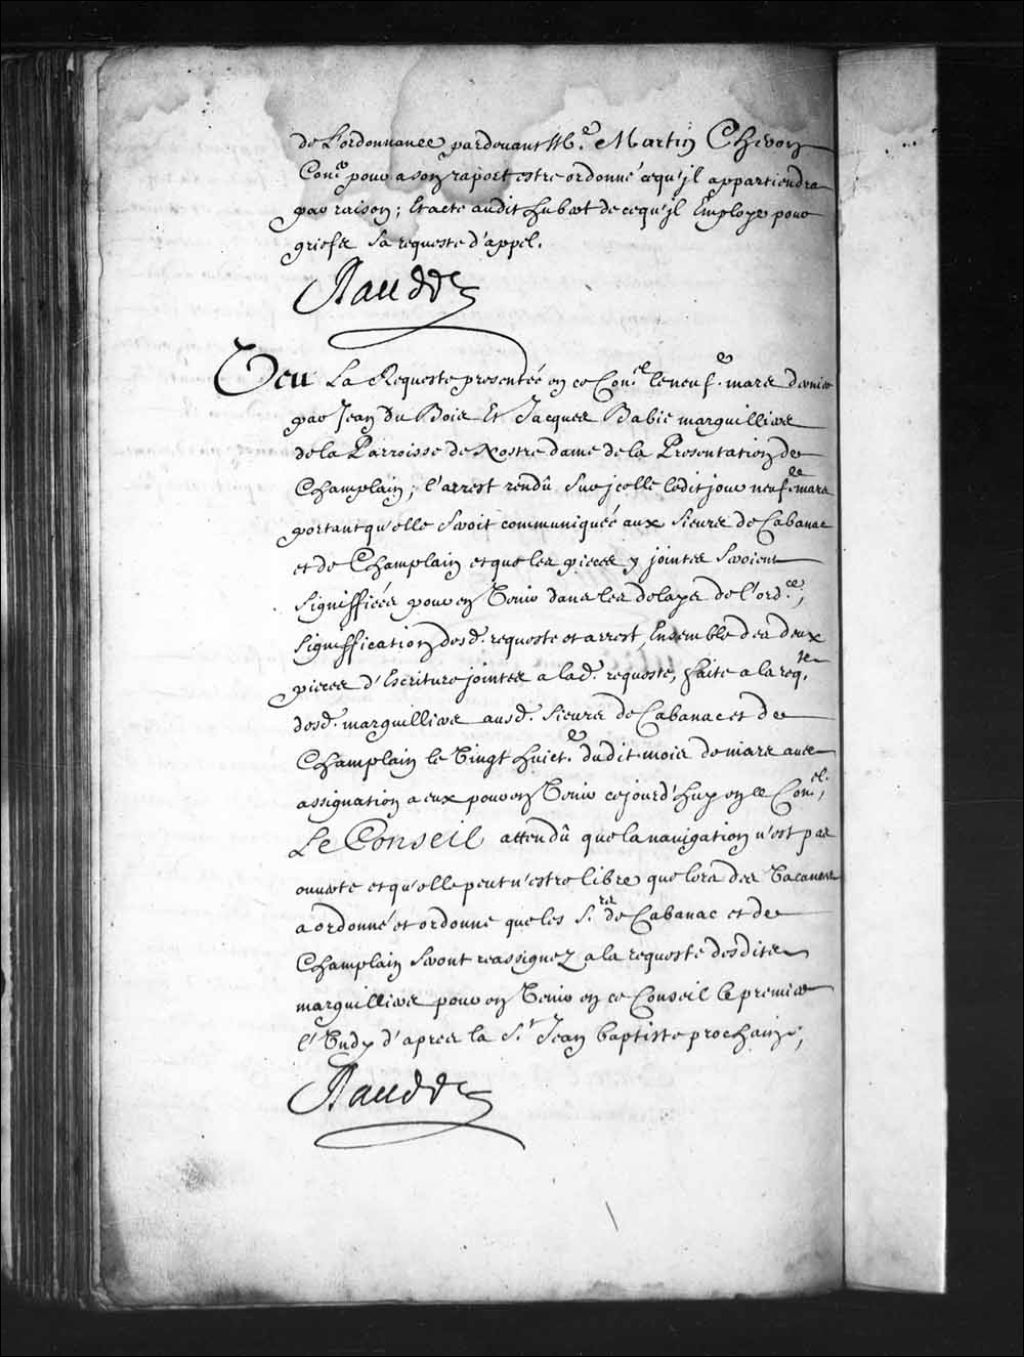 de L'ordonnance pardevant Me. Martin Cheron
Conr. pour a son raport estre ordonné cequ'jl appartiendra
par raison; Et acte audit hubert de cequ'jl Employe pour
griefs sa requeste d'appel.
Raudot
Veu La Requeste presentée en ce Conel. le neufe. mars dernier
par Jean Du Bois Et Jacques Babie marguilliers
de la Parroisse de Nostre dame de la Presentation de
Champlain; l'arrest rendû sur jcelle ledit jour neufe. mars
portant qu'elle seroit communiquée aux sieurs de Cabanac
et de Champlain et que les pieces y jointes seroient
signiffiées pour en Venir dans les delays de l'ordce;
signiffication desd. requeste et arrest, Ensemble des deux
pieces d'Escriture jointes a lad. requeste, faite a la reqte.
desd. marguilliers ausd. sieurs de Cabanac et de
Champlain le Vingt huicte. dudit mois de mars avec
assignation a eux pour en Venir cejourd'huy en ce Conel;
Le Conseil attendû que la navigation n'est pas
ouverte et qu'elle peut n'estre libre que lors des Vacances
a ordonné et ordonne que les Srs. de Cabanac et de
Champlain seront reassignez a la requeste desdits
marguilliers pour en Venir en ce Conseil le premier
lundy d'apres la St. Jean baptiste prochain;
Raudot